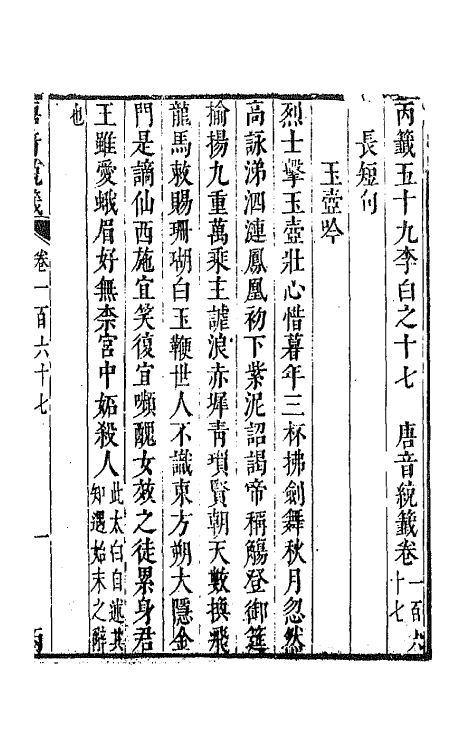 丙籤五十九李白之十七　唐音統籤卷一百六十七
長短句
玉壺吟
烈士擊玉壺壯心惜暮年三杯拂劍舞秋月忽然
高詠涕泗漣鳳凰初下紫泥詔謁帝稱觴登御筵
揄揚九重萬乘主謔浪赤墀青瑣賢朝天數換飛
龍馬敕賜珊瑚白玉鞭世人不識東方朔大隱金
門是謫仙西施宜笑復宜嚬醜女效之徒累身君
王雖愛蛾眉好無柰宮中妬殺人此太白自述其知遇始末之辭
也
卷一百六十七
一